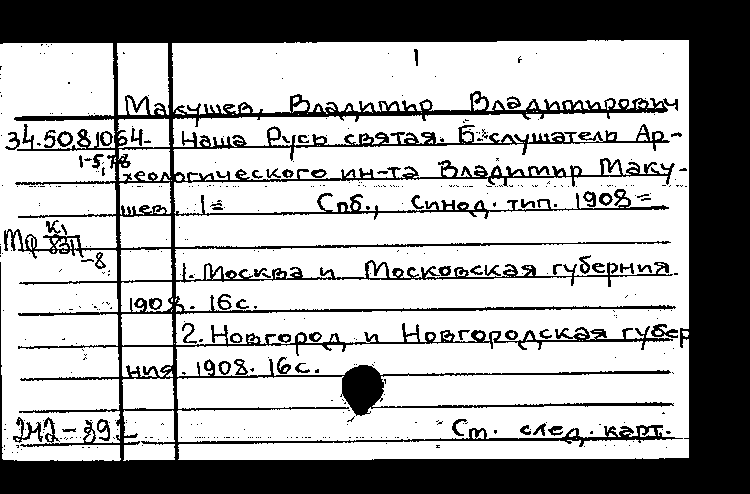 1
Макушев, Владимир Владимирович
34.50.8.1064- Наша Русь святая. Б. слушатель Ар-
1-5,7,8
хеологического ин-та Владимир Маку-
шев. 1= Спб., Синод. тип. 1908=
Мф К1
8311 -8
1. Москва и Московская губерния
1908. 16 с.
2. Новгород и Новгородская губер
ния. 1908. 16 с.
242-892 См. след. карт.